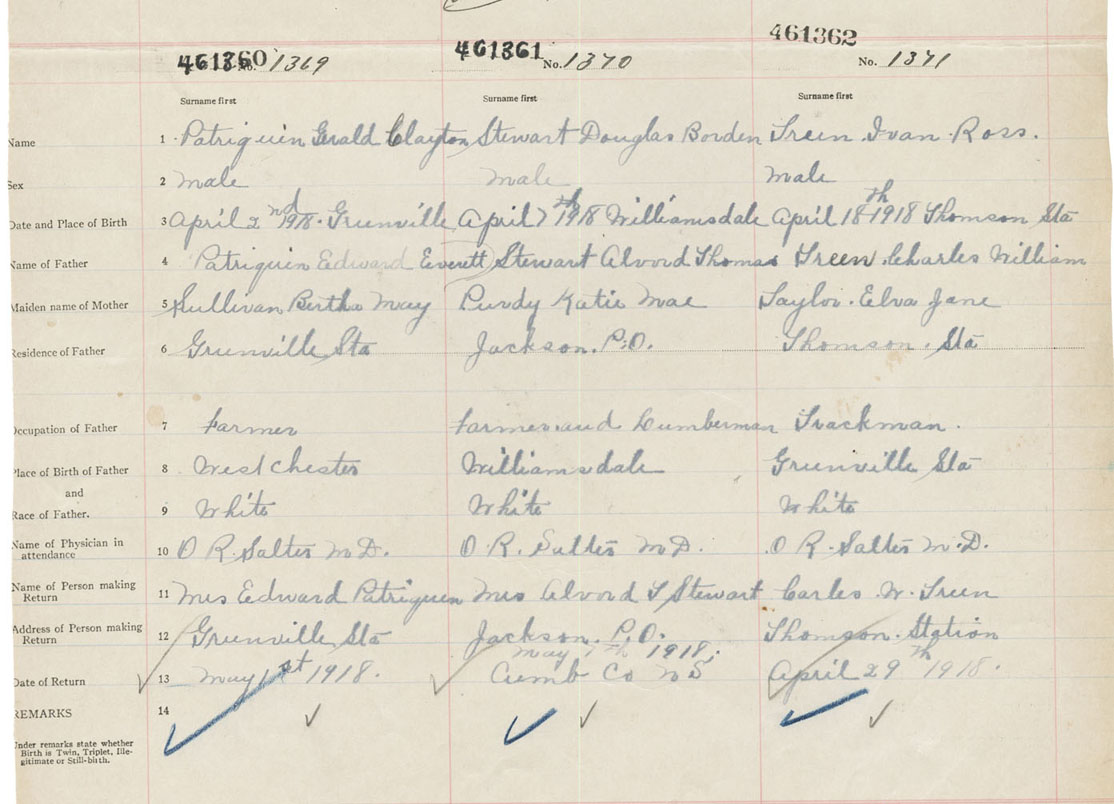 461360 461361 461362
No. 1369 No. 1370 No. 1371
Surname first Surname first Surname first
Name 1 Patriquin Gerald Clayton Stewart Douglas Borden Treen Ivan Ross.
Sex 2 male male male
Date and Place of Birth 3 April 2nd 1918. Grenville April 7th 1918 Williamsdale April 18th 1918 Thomson Sta
Name of Father 4 Patriquin Edward Everett Stewart Alvord Thomas Treen Charles William
Maiden name of Mother 5 Sullivan Bertha May Purdy Katie Mae Taylor. Elva Jane
Residence of Father 6 Grenville Sta Jackson. P.O. Thomson. Sta
Occupation of Father 7 Farmer Farmer and Lumberman Trackman.
Place of Birth of Father 8 West chester Williamsdale Grenville Sta
and
Race of Father. 9 White White White
Name of Physician in
attendance 10 O R. Salter M D. O. R. Salter M D. O R. Salter M. D.
Name of Person making
Return 11 Mrs Edward Patriquin Mrs Alvord T Stewart Carles W. Treen
Address of Person making
Return 12 Grenville Sta Jackson. P.O. Thomson. Station
May 7th 1918.
Date of Return 13 May 1st 1918. Cumb Co N S April 29th 1918.
REMARKS 14
Under remarks state whether
Birth is Twin, Triplet, Ille-
gitimate or Still-birth.